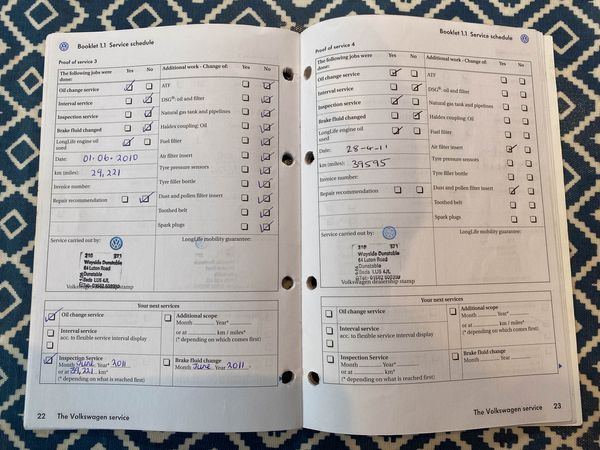 Booklet 1.1 Service schedule
Proof of service 3
The following jobs were done:
Yes
No
Oil change service
Interval service
Inspection service
Brake fluid changed
LongLife engine oil used
Date: 01.06.2010
km (miles): 29,221
Invoice number:
Repair recommendation
Additional work - Change of:
Yes
No
ATF
DSG®: oil and filter
Natural gas tank and pipelines
Haldex coupling: Oil
Fuel filter
Air filter insert
Tyre pressure sensors
Tyre filler bottle
Dust and pollen filter insert
Toothed belt
Spark plugs
Service carried out by:
LongLife mobility guarantee:
Wayside Dunstable
64 Luton Road
Dunstable
Beds LU5 4JL
Your next services
Oil change service
Interval service
acc. to flexible service interval display
Inspection Service
Month June Year* 2011
or at 39,221 km*
(* depending on what is reached first)
Additional scope
Month Year*
or at km / miles*
(* depending on which comes first)
Brake fluid change
Month June Year 2011
22 The Volkswagen service
Booklet 1.1 Service schedule
Proof of service 4
The following jobs were done:
Yes
No
Oil change service
Interval service
Inspection service
Brake fluid changed
LongLife engine oil used
Date: 28-4-11
km (miles): 39595
Invoice number:
Repair recommendation
Additional work - Change of:
Yes
No
ATF
DSG®: oil and filter
Natural gas tank and pipelines
Haldex coupling: Oil
Fuel filter
Air filter insert
Tyre pressure sensors
Tyre filler bottle
Dust and pollen filter insert
Toothed belt
Spark plugs
Service carried out by:
LongLife mobility guarantee:
Wayside Dunstable
64 Luton Road
Dunstable
Beds LU5 4JL
Volkswagen dealership stamp
Your next services
Oil change service
Interval service
acc. to flexible service interval display
Inspection Service
Month Year*
or at km*
(* depending on what is reached first)
Additional scope
Month Year*
or at km / miles*
(* depending on which comes first)
Brake fluid change
Month Year
The Volkswagen service 23